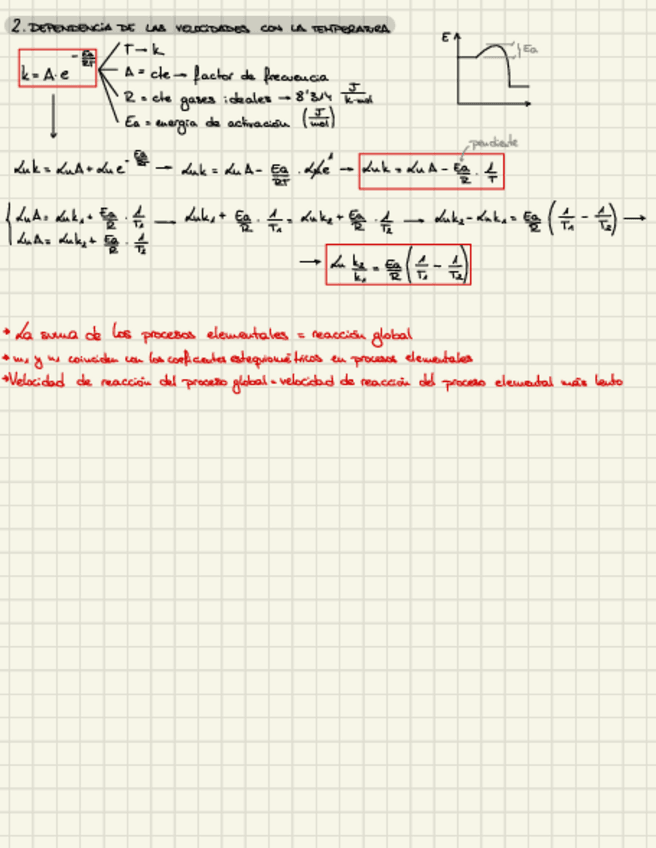 2. DEPENDENCIA DE LAS VELOCIDADES CON LA TEMPERATURA
k = A · e^(-Ea/RT)
T → k
A = cte → factor de frecuencia
R = cte gases ideales → 8'314 J/k·mol
Ea = energía de activación (J/mol)
E
Ea
pendiente
Ln k = Ln A + Ln e^(-Ea/RT) → Ln k = Ln A - Ea/RT · Ln e^1 → Ln k = Ln A - Ea/R · 1/T
Ln A = Ln k₁ + Ea/R · 1/T₁ → Ln k₁ + Ea/R · 1/T₁ = Ln k₂ + Ea/R · 1/T₂ → Ln k₂ - Ln k₁ = Ea/R (1/T₁ - 1/T₂) →
Ln A = Ln k₂ + Ea/R · 1/T₂
→ Ln k₂/k₁ = Ea/R (1/T₁ - 1/T₂)
* La suma de los procesos elementales = reacción global
y coinciden con los coeficientes estequiométricos en procesos elementales
* Velocidad de reacción del proceso global = velocidad de reacción del proceso elemental más lento